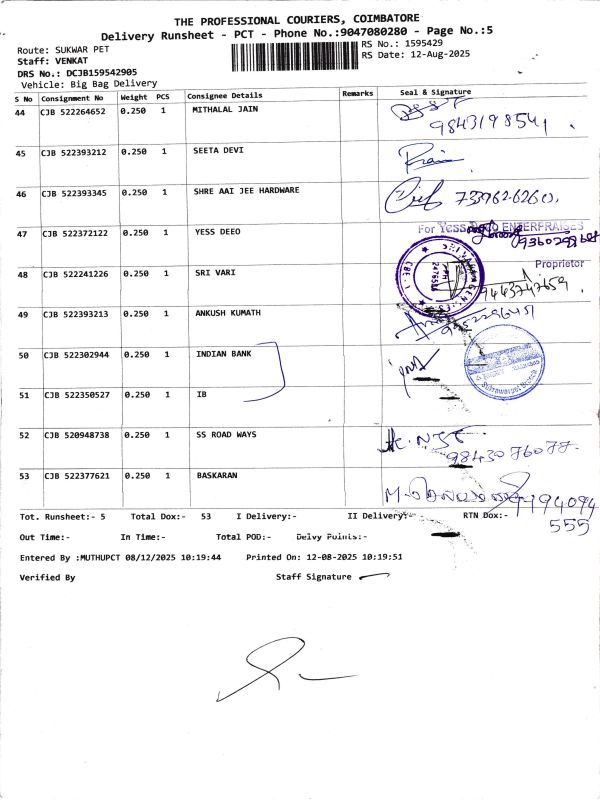 THE PROFESSIONAL COURIERS, COIMBATORE
Delivery Runsheet - PCT - Phone No.:9047080280 - Page No.:5
Route: SUKWAR PET
RS No.: 1595429
Staff: VENKAT
RS Date: 12-Aug-2025
DRS No.: DCJB159542905
Vehicle: Big Bag Delivery
S No Consignment No Weight PCS Consignee Details Remarks Seal & Signature
44 CJB 522264652 0.250 1 MITHALAL JAIN
9843198541
45 CJB 522393212 0.250 1 SEETA DEVI
46 CJB 522393345 0.250 1 SHRE AAI JEE HARDWARE
739626260
47 CJB 522372122 0.250 1 YESS DEEO
For Yess
Proprietor
48 CJB 522241226 0.250 1 SRI VARI
9443747659
49 CJB 522393213 0.250 1 ANKUSH KUMATH
50 CJB 522302944 0.250 1 INDIAN BANK
51 CJB 522350527 0.250 1 IB
52 CJB 520948738 0.250 1 SS ROAD WAYS
9843076077
53 CJB 522377621 0.250 1 BASKARAN
555
Tot. Runsheet:- 5 Total Dox:- 53 I Delivery:- II Delivery:- RTN Dox:-
Out Time:- In Time:- Total POD:- Delvy Points:-
Entered By :MUTHUPCT 08/12/2025 10:19:44 Printed On: 12-08-2025 10:19:51
Verified By Staff Signature